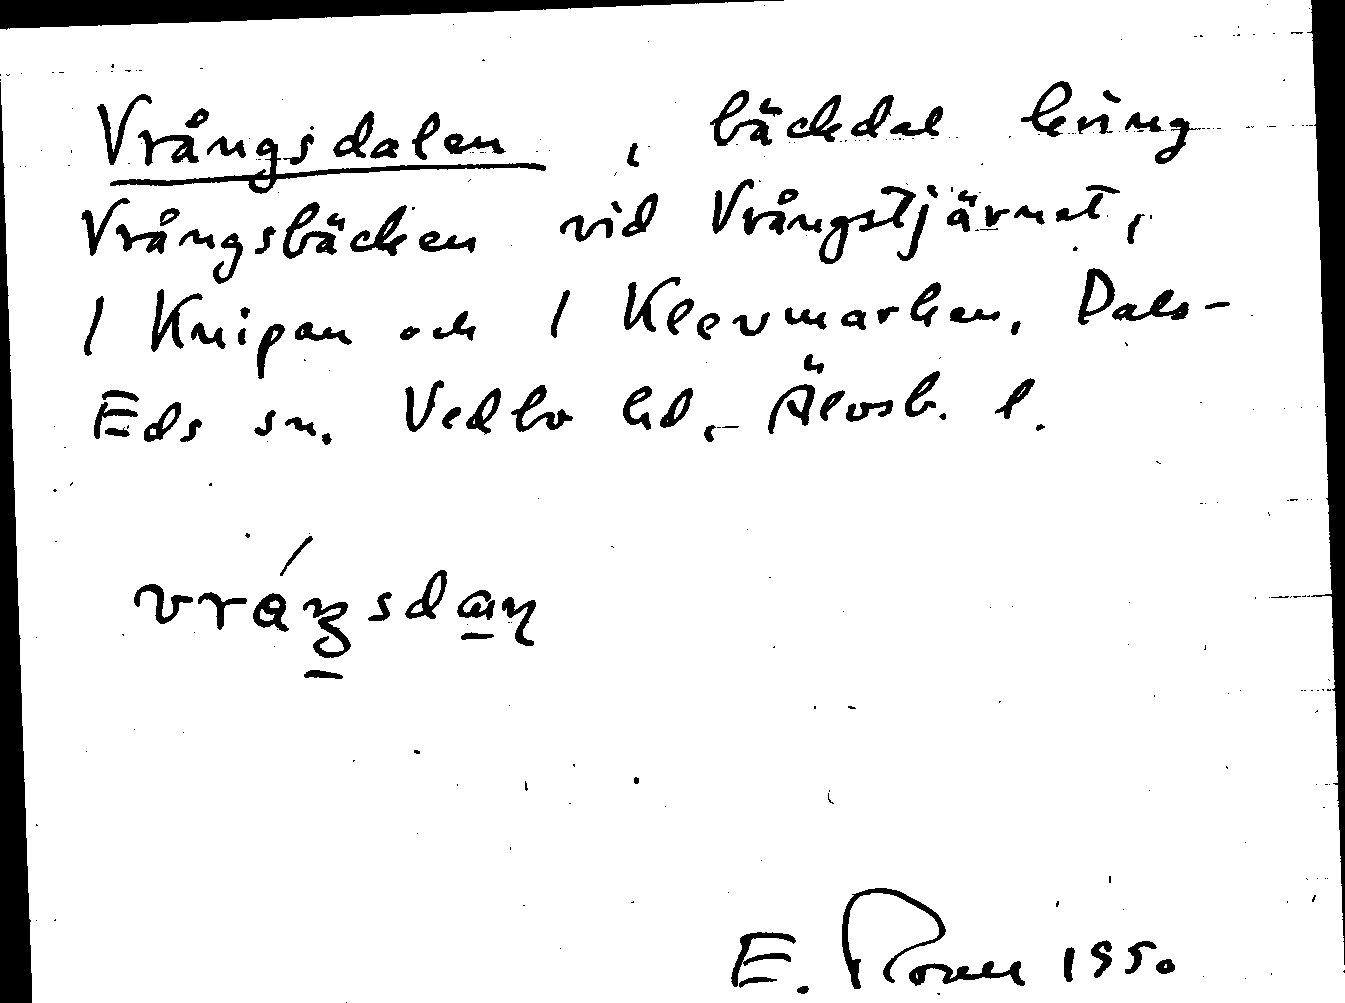 Vrångsdalen, bäckdal kring
Vrångsbäcken vid Vrångstjärnet,
/ Knipan och / Klevmarken, Dals-
Eds sn. Vedbo hd, Älvsb. l.
E. 1950